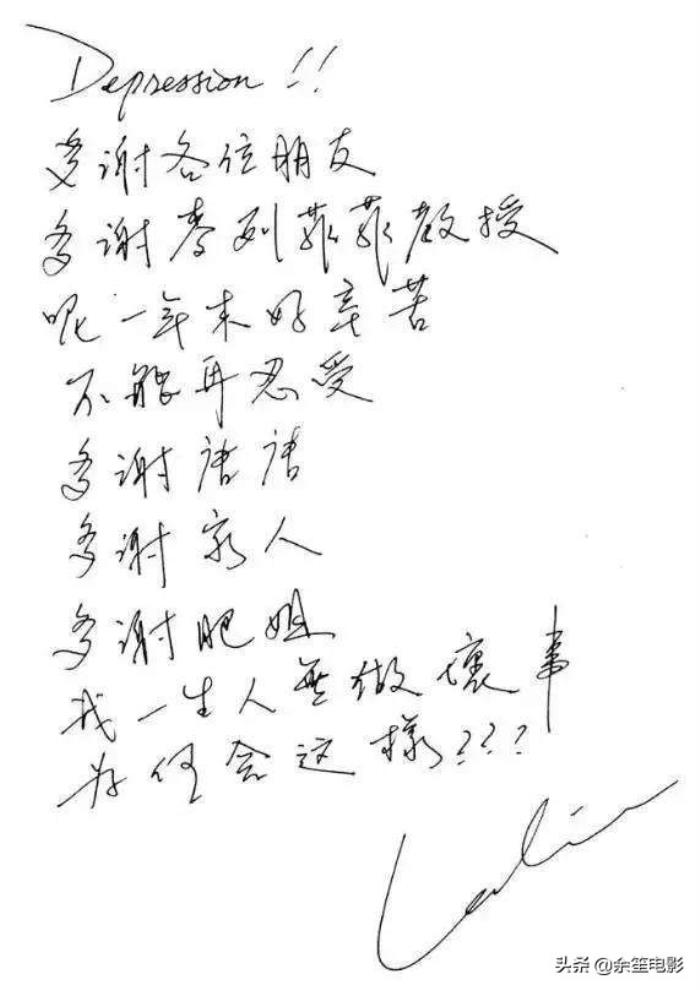 Depression!!
多谢各位朋友
多谢麥列菲菲教授
呢一年来好辛苦
不能再忍受
多谢唐唐
多谢家人
多谢肥姐
我一生人無做壞事
为何会这樣???
Leslie
头条 @余笙电影